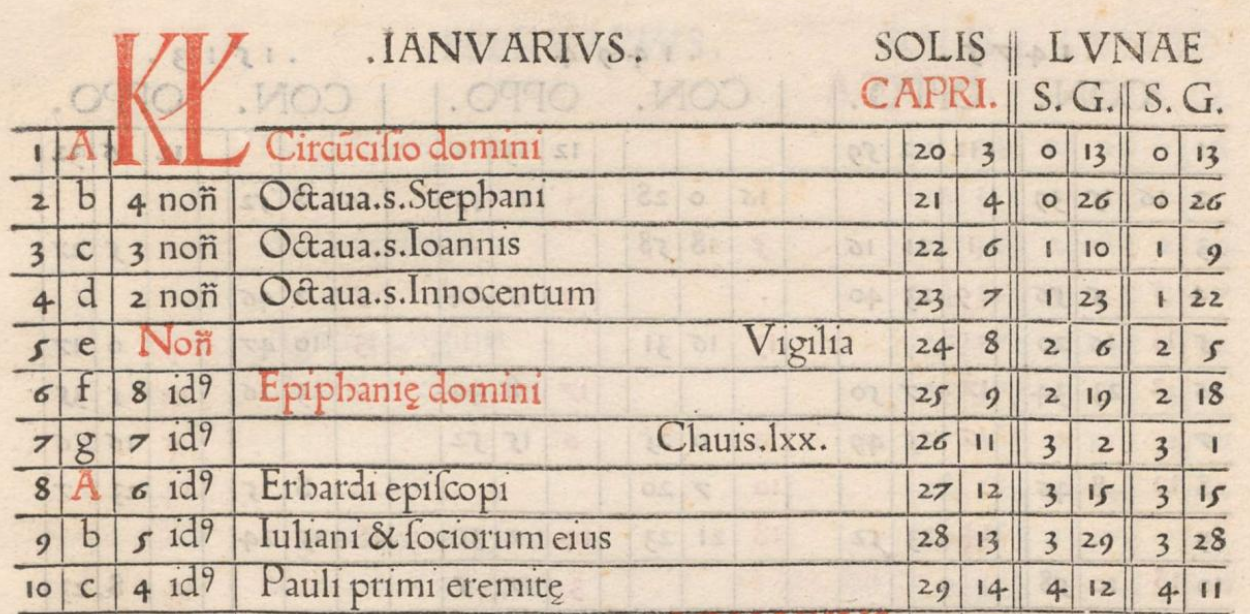 KL .IANVARIVS. SOLIS LVNAE
CAPRI. S. G. S. G.
1 A Circũcisio domini 20 3 0 13 0 13
2 b 4 non̄ Octaua.s.Stephani 21 4 0 26 0 26
3 c 3 non̄ Octaua.s.Ioannis 22 6 1 10 1 9
4 d 2 non̄ Octaua.s.Innocentum 23 7 1 23 1 22
5 e Non̄ Vigilia 24 8 2 6 2 5
6 f 8 idꝰ Epiphanię domini 25 9 2 19 2 18
7 g 7 idꝰ Clauis.lxx. 26 11 3 2 3 1
8 A 6 idꝰ Erhardi epiſcopi 27 12 3 15 3 15
9 b 5 idꝰ Iuliani & ſociorum eius 28 13 3 29 3 28
10 c 4 idꝰ Pauli primi eremitę 29 14 4 12 4 11